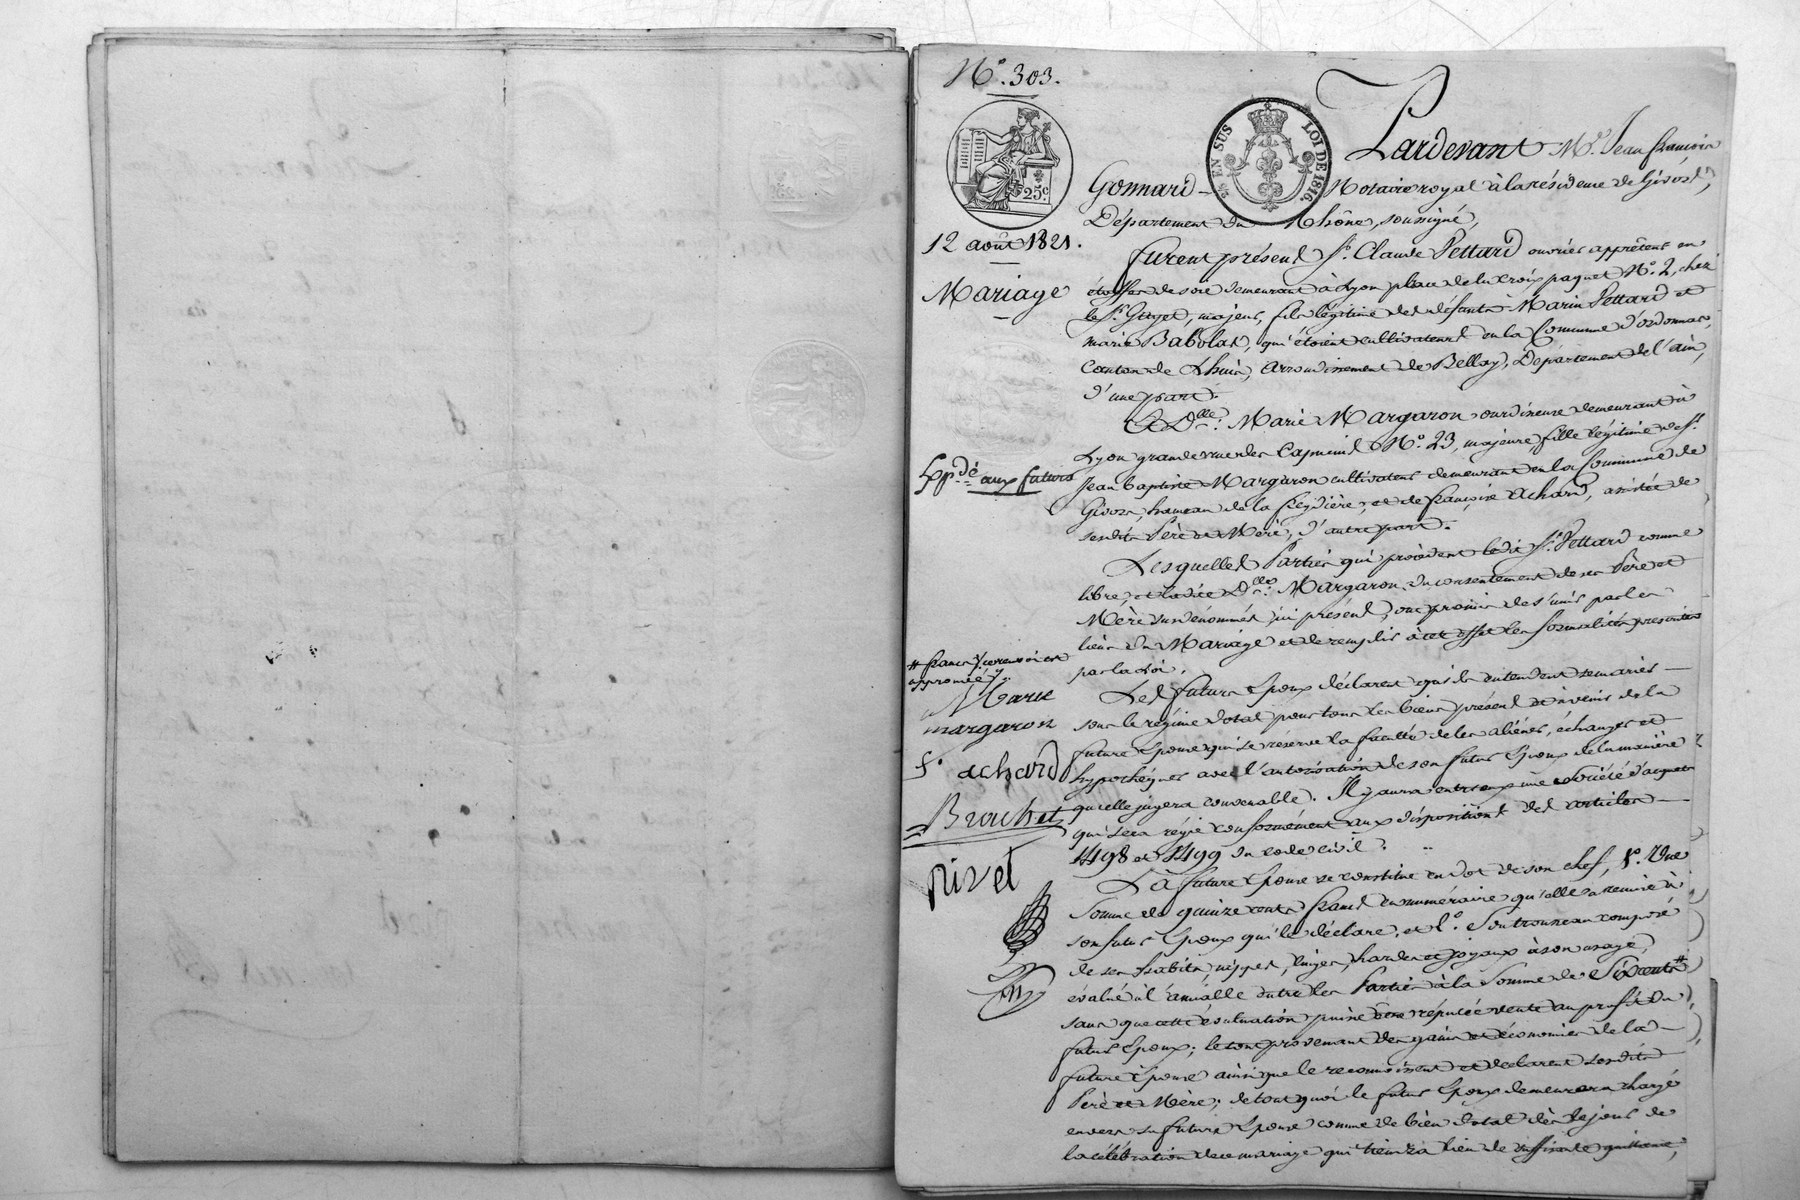 N.° 303.
25 EN SUS
LOI DE 1816.
25.c
12 août 1821.
Mariage
Expdé. aux futurs
# francs, ce renvoi est
approuvé
Marie
margaron
f. achard
Brochet
Rivet
Pardevant M.e Jean françois
Gonnard Notaire royal à la résidence de Givors,
Département du Rhône, soussigné,
furent présens S.r Claude Pettard ouvrier apprêteur en
étoffes de soie demeurant à Lyon place de la croix paquet N.° 2, chez
le S.r Guyet, majeur, fils légitime des défunts Marin Pettard et
marie Babolat, qui étoient cultivateurs en la Commune d'ordonnas,
Canton de Lhuis, arrondissement de Belley, Département de l'ain,
d'une part.
Et D.lle Marie Margaron ourdisseuse demeurant à
Lyon grande rue des Capucins N.° 23, majeure fille légitime de S.r
Jean baptiste Margaron cultivateur demeurant en la Commune de
Givors, hameau de la freydière, et de françoise Achard, assistée de
sesdits Père et Mère, d'autre part.
Lesquelles Parties qui procèdent ledit S.r Pettard comme
libre, et ladite D.lle Margaron du consentement de ses Père et
Mère susdénommés, ici présens, ont promis de s'unir par les
liens du Mariage et de remplir à cet effet les formalités prescrites
par la Loi.
Les futurs Epoux déclarent qu'ils entendent se marier
sous le régime dotal pour tous les biens présens et à venir de la
future Epouse qui se réserve la faculté de les aliéner, échanger et
hypothéquer avec l'autorisation de son futur Epoux de la manière
qu'elle jugera convenable. Il y aura entr'eux une société d'acquets
qui sera régie conformément aux dispositions des articles
1498 et 1499 du code civil.
La future Epouse se constitue en dot de son chef, 1.° Une
Somme de quinze cents francs en numéraire qu'elle a remise à
son futur Epoux qui le déclare, et 2.° Son trousseau composé
de ses habits, nippes, linges, hardes et joyaux à son usage,
évalué à l'amiable entre les Parties à la Somme de Six cents #
sans que cette évaluation puisse être réputée vente au profit du
futur Epoux; le tout provenant des gains et économies de la
future Epouse ainsi que le reconnoissent et déclarent sesdits
Père et Mère; de tout quoi le futur Epoux demeurera chargé
envers sa future Epouse comme de bien dotal dès le jour de
la célébration de ce mariage qui tiendra lieu de suffisante quittance,